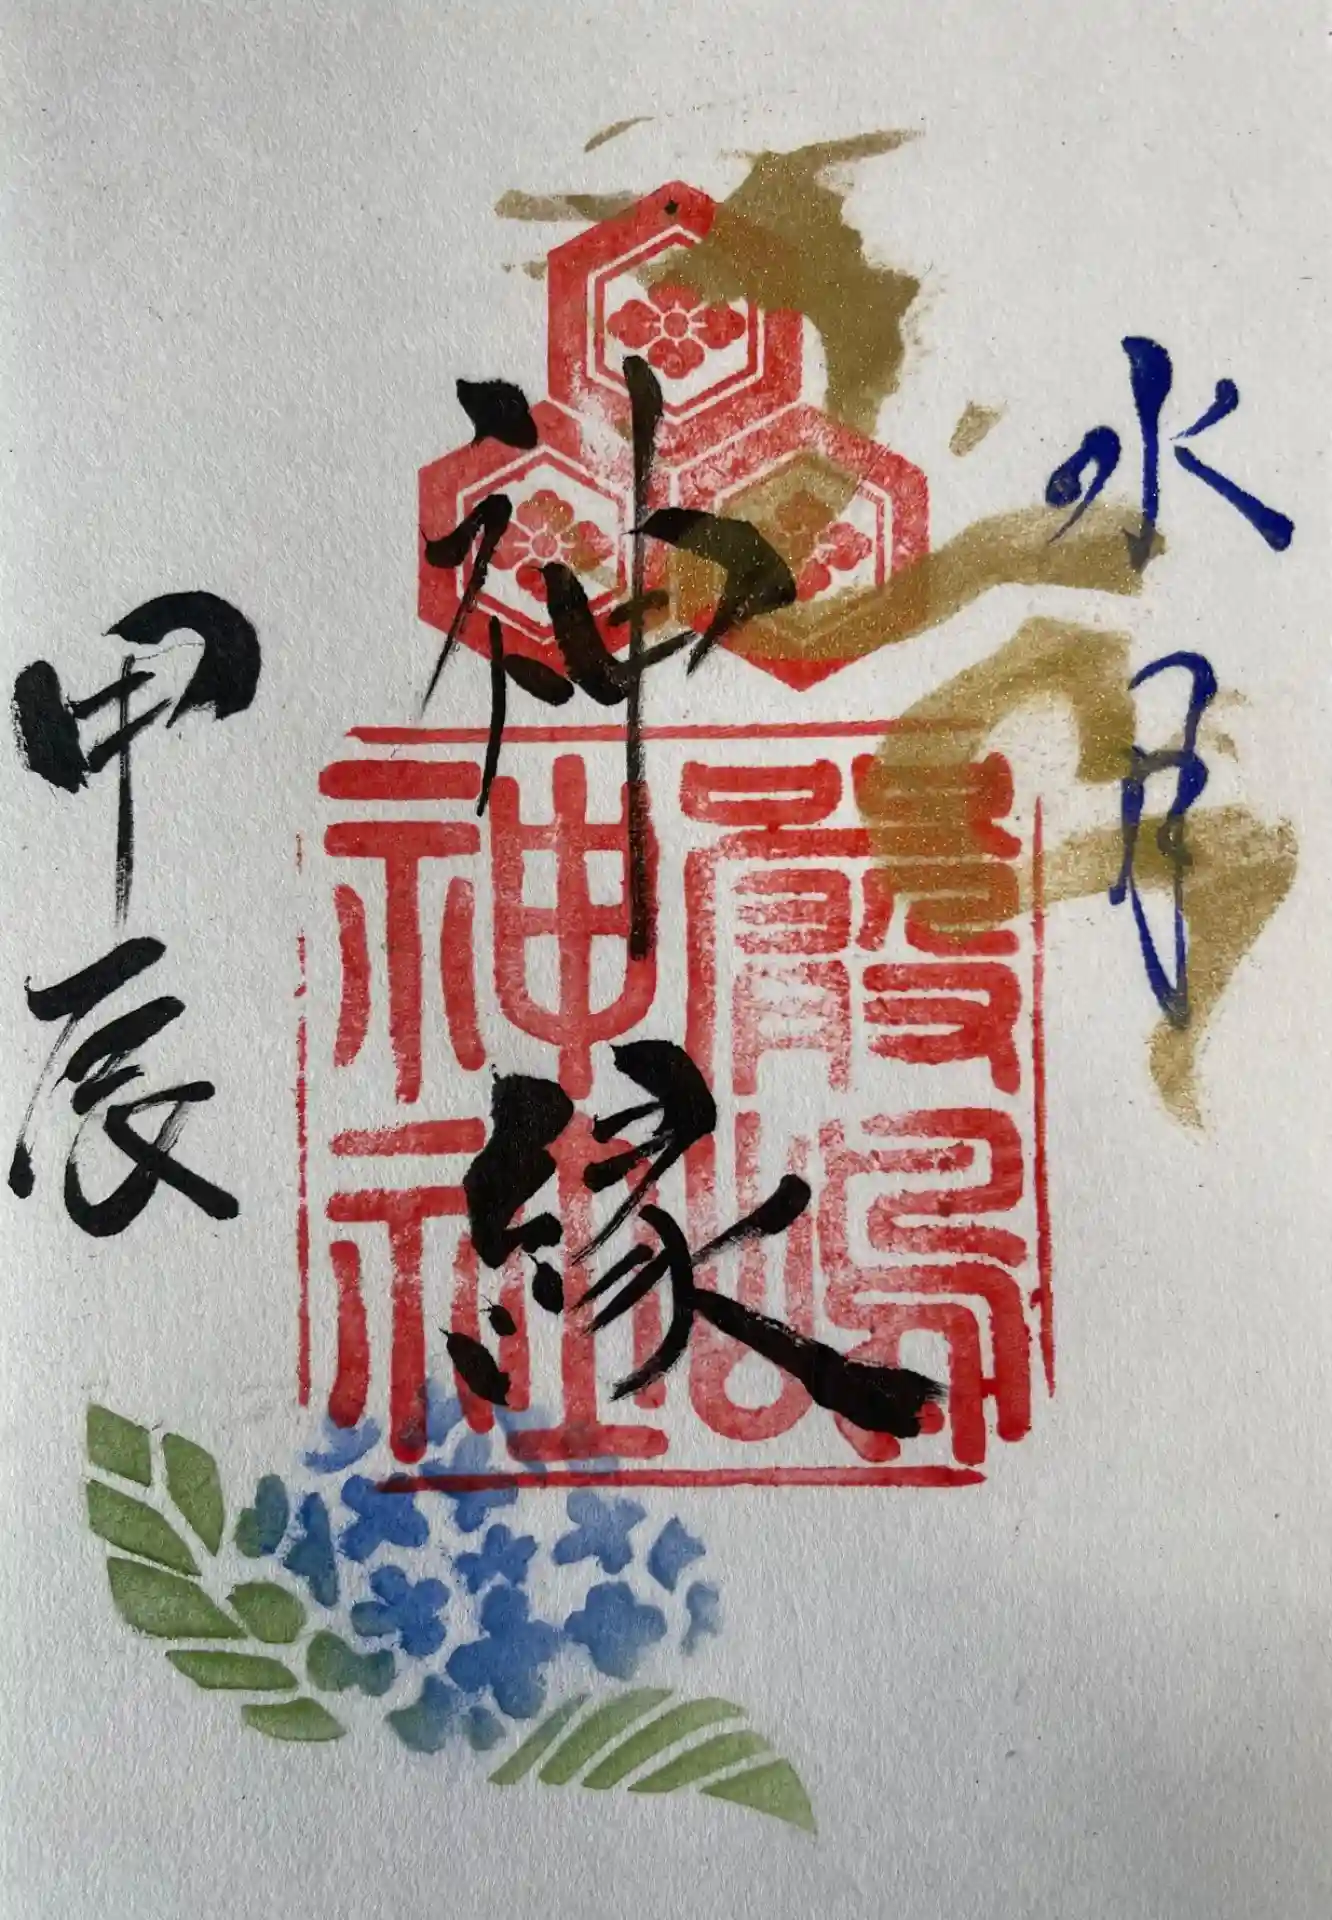 水月
神縁
甲辰
嚴嶋
神社